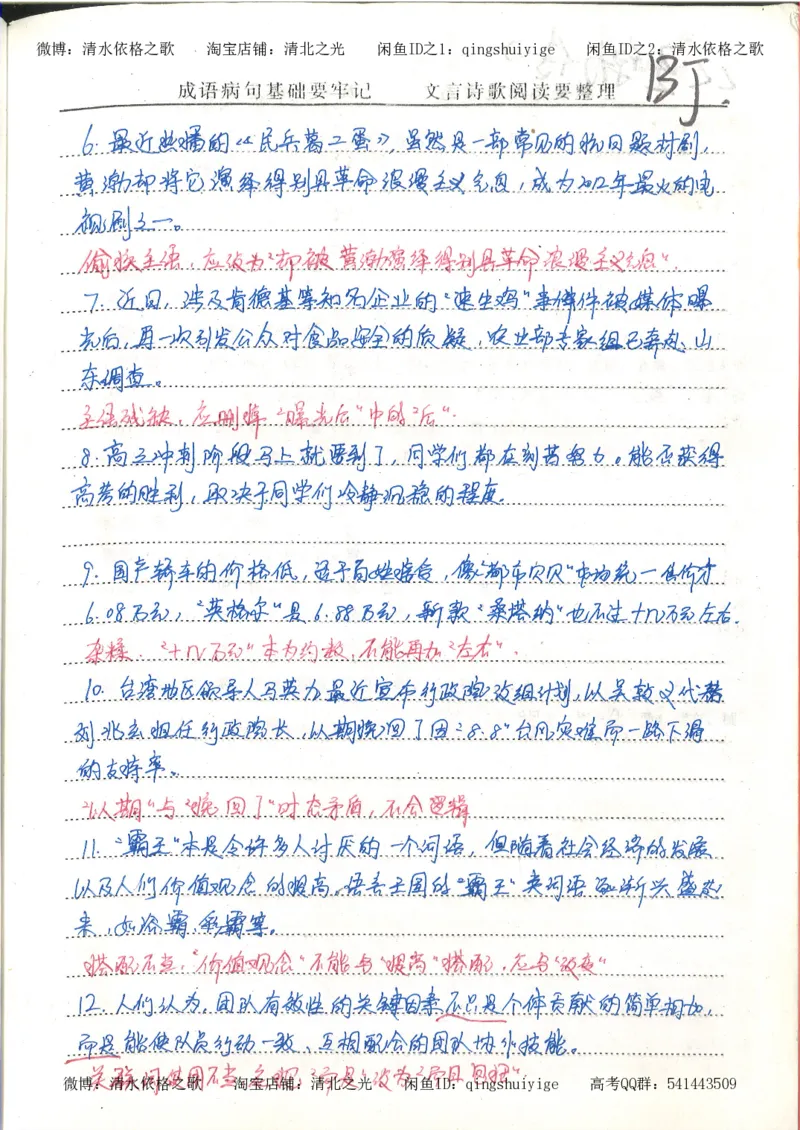 微博：清水依格之歌 淘宝店铺：清北之光 闲鱼ID之1：qingshuiyige 闲鱼ID之2：清水依格之歌
成语病句基础要牢记 文言诗歌阅读要整理 BJ.
6. 最近热播的《民兵葛二蛋》，虽然是一部常见的抗日题材剧，
黄渤却将它演绎得别具革命浪漫主义气息，成为2012年最火的电
视剧之一。
偷换主语，应改为“却被黄渤演绎得别具革命浪漫主义气息”.
7. 近日，涉及肯德基等知名企业的“速生鸡”事件被媒体曝
光后，再一次引发公众对食品安全的质疑，农业部专家组已奔赴山
东调查。
主语残缺，应删掉“曝光后”中的“后”.
8. 高三冲刺阶段马上就要到了，同学们都在刻苦努力。能否获得
高考的胜利，取决于同学们冷静沉稳的程度.
9. 国产轿车的价格低，适于百姓婚合，像“都市贝贝”市场统一售价才
6.08万元，“英格尔”是6.88万元，新款“桑塔纳”也不过十几万元左右.
杂糅. “十几万元”本为约数，不能再加“左右”.
10. 台湾地区领导人马英九最近宣布行政院改组计划，以吴敦义代替
刘兆玄担任行政院长，以期挽回了因“8.8”台风灾难而一路下滑
的支持率。
“以期”与“挽回了”时态矛盾，不合逻辑
11. “霸王”本是令许多人讨厌的一个词语，但随着社会经济的发展
以及人们价值观念的提高，语言王国的“霸王”类词语逐渐兴盛起
来，如浴霸、彩霸等。
搭配不当，“价值观念”不能与“提高”搭配，应与“改变”
12. 人们认为，团队有效性的关键因素不只是个体贡献的简单相加，
而是能使队员行动一致、互相配合的团队协作技能。
关联词使用不当
微博：清水依格之歌 淘宝店铺：清北之光 闲鱼ID之1：qingshuiyige 高考QQ群：541443509